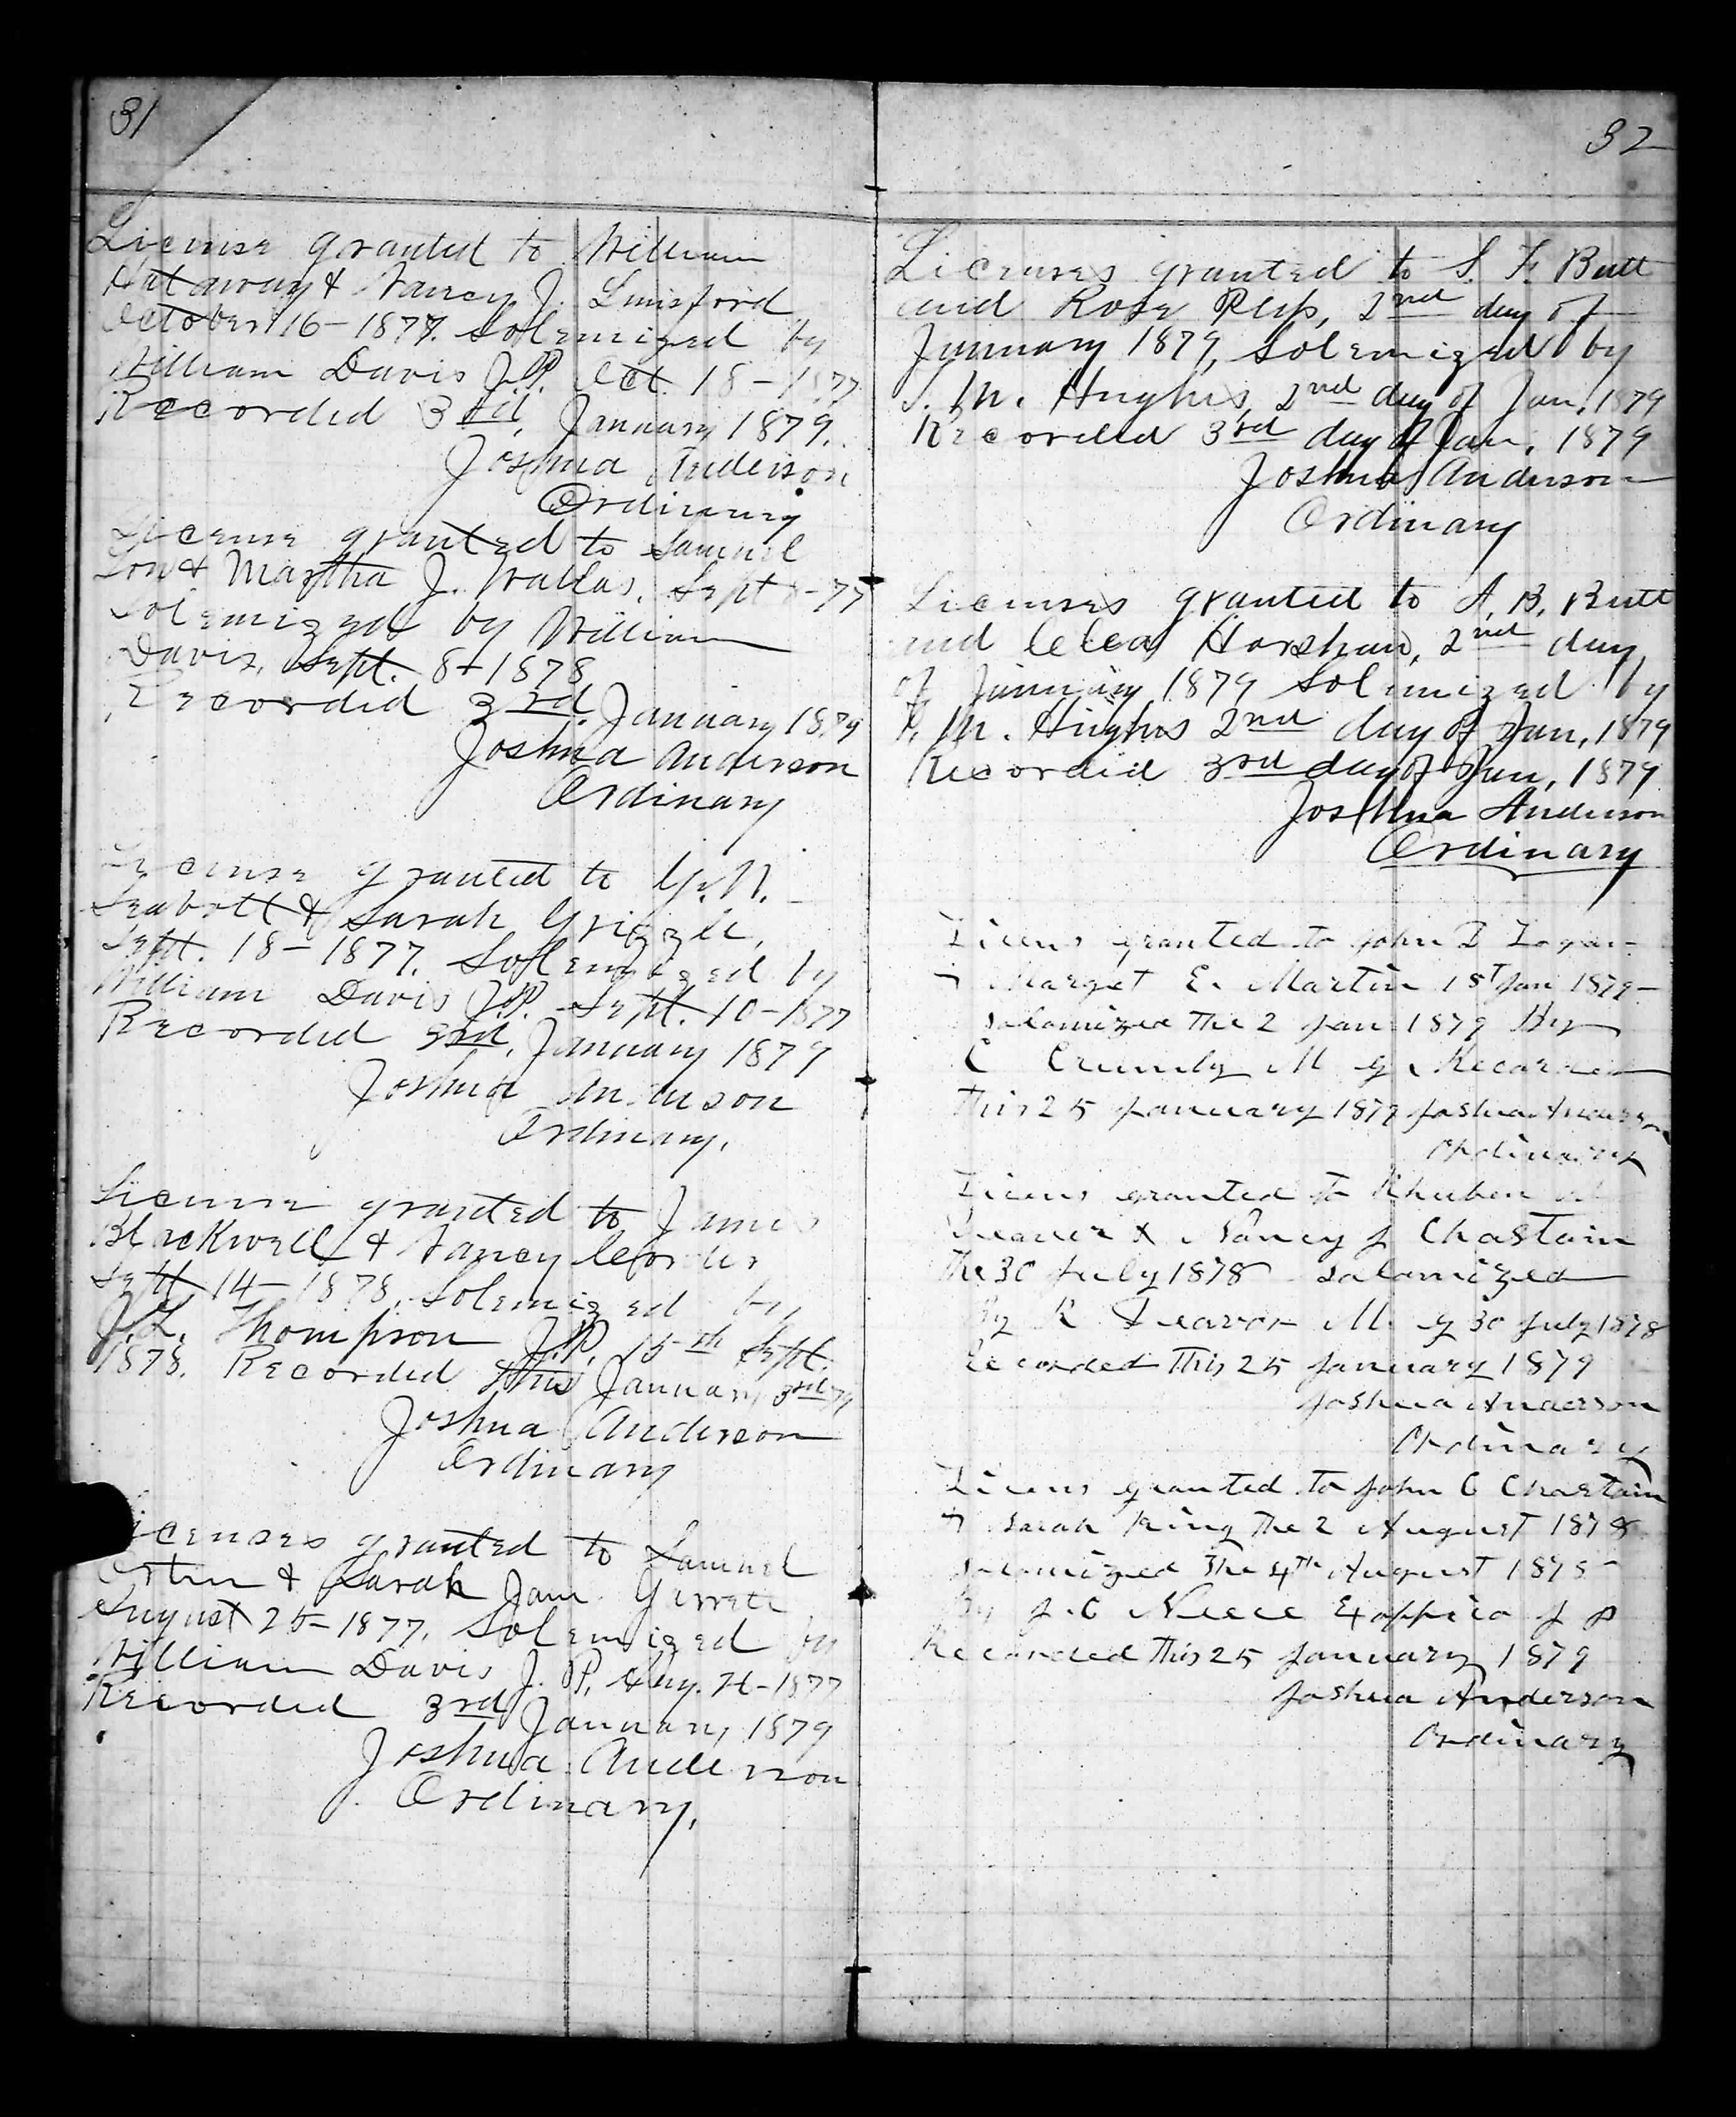 31
License granted to William
Hataway & Nancy J. Lunsford
October 16-1877. Solemized by
William Davis J.P. Oct. 18-1877
Recorded 3rd, January 1879.
Joshua Anderson
Ordinary
License granted to Samuel
& Martha J. Wallas, Sept
Solemized by William
Davis, Sept. 8-1878
Recorded 3rd January 1879
Joshua Anderson
Ordinary
License granted to G. N.
Seabolt & Sarah Grizzle,
Sept. 18-1877. Solemized by
William Davis J.P. Sept. 10-1877
Recorded 3rd, January 1879
Joshua Anderson
Ordinary.
License granted to James
Blackwell & Nancy
Sept 14-1878, Solemized by
J. L. Thompson J.P. 15th Sept.
1878. Recorded this January 3rd 79
Joshua Anderson
Ordinary
Licenses granted to Samuel
& Sarah Jane
August 25-1877. Solemized by
William Davis J. P. Aug. -1877
Recorded 3rd January, 1879
Joshua Anderson
Ordinary.
32
Licenses granted to S. F. Butt
and Rose 2nd day of
January 1879, Solemized by
M. Hughes 2nd day of Jan, 1879
Recorded 3rd day of Jan, 1879
Joshua Anderson
Ordinary
Licenses granted to A. B. Butt
and 2nd day
of January 1879 Solemized by
M. Hughes 2nd day of Jan, 1879
Recorded 3rd day of Jan, 1879
Joshua Anderson
Ordinary
Licens granted to John Logan
& Marget E. Martin 1st Jan 1879
Solamized the 2 Jan 1879 By
C Crumly M g Recorded
this 25 January 1879 Joshua Anderson
Ordinary
Licens granted to Rheuben
& Nancy J Chastain
the 30 July 1878 Solamized
By R Deaver M g 30 July 1878
Recorded this 25 January 1879
Joshua Anderson
Ordinary
Licens granted to John C Chastain
& Sarah King the 2 August 1878
Solamized the 4th August 1878
By J. C Neece J P
Recorded this 25 January 1879
Joshua Anderson
Ordinary